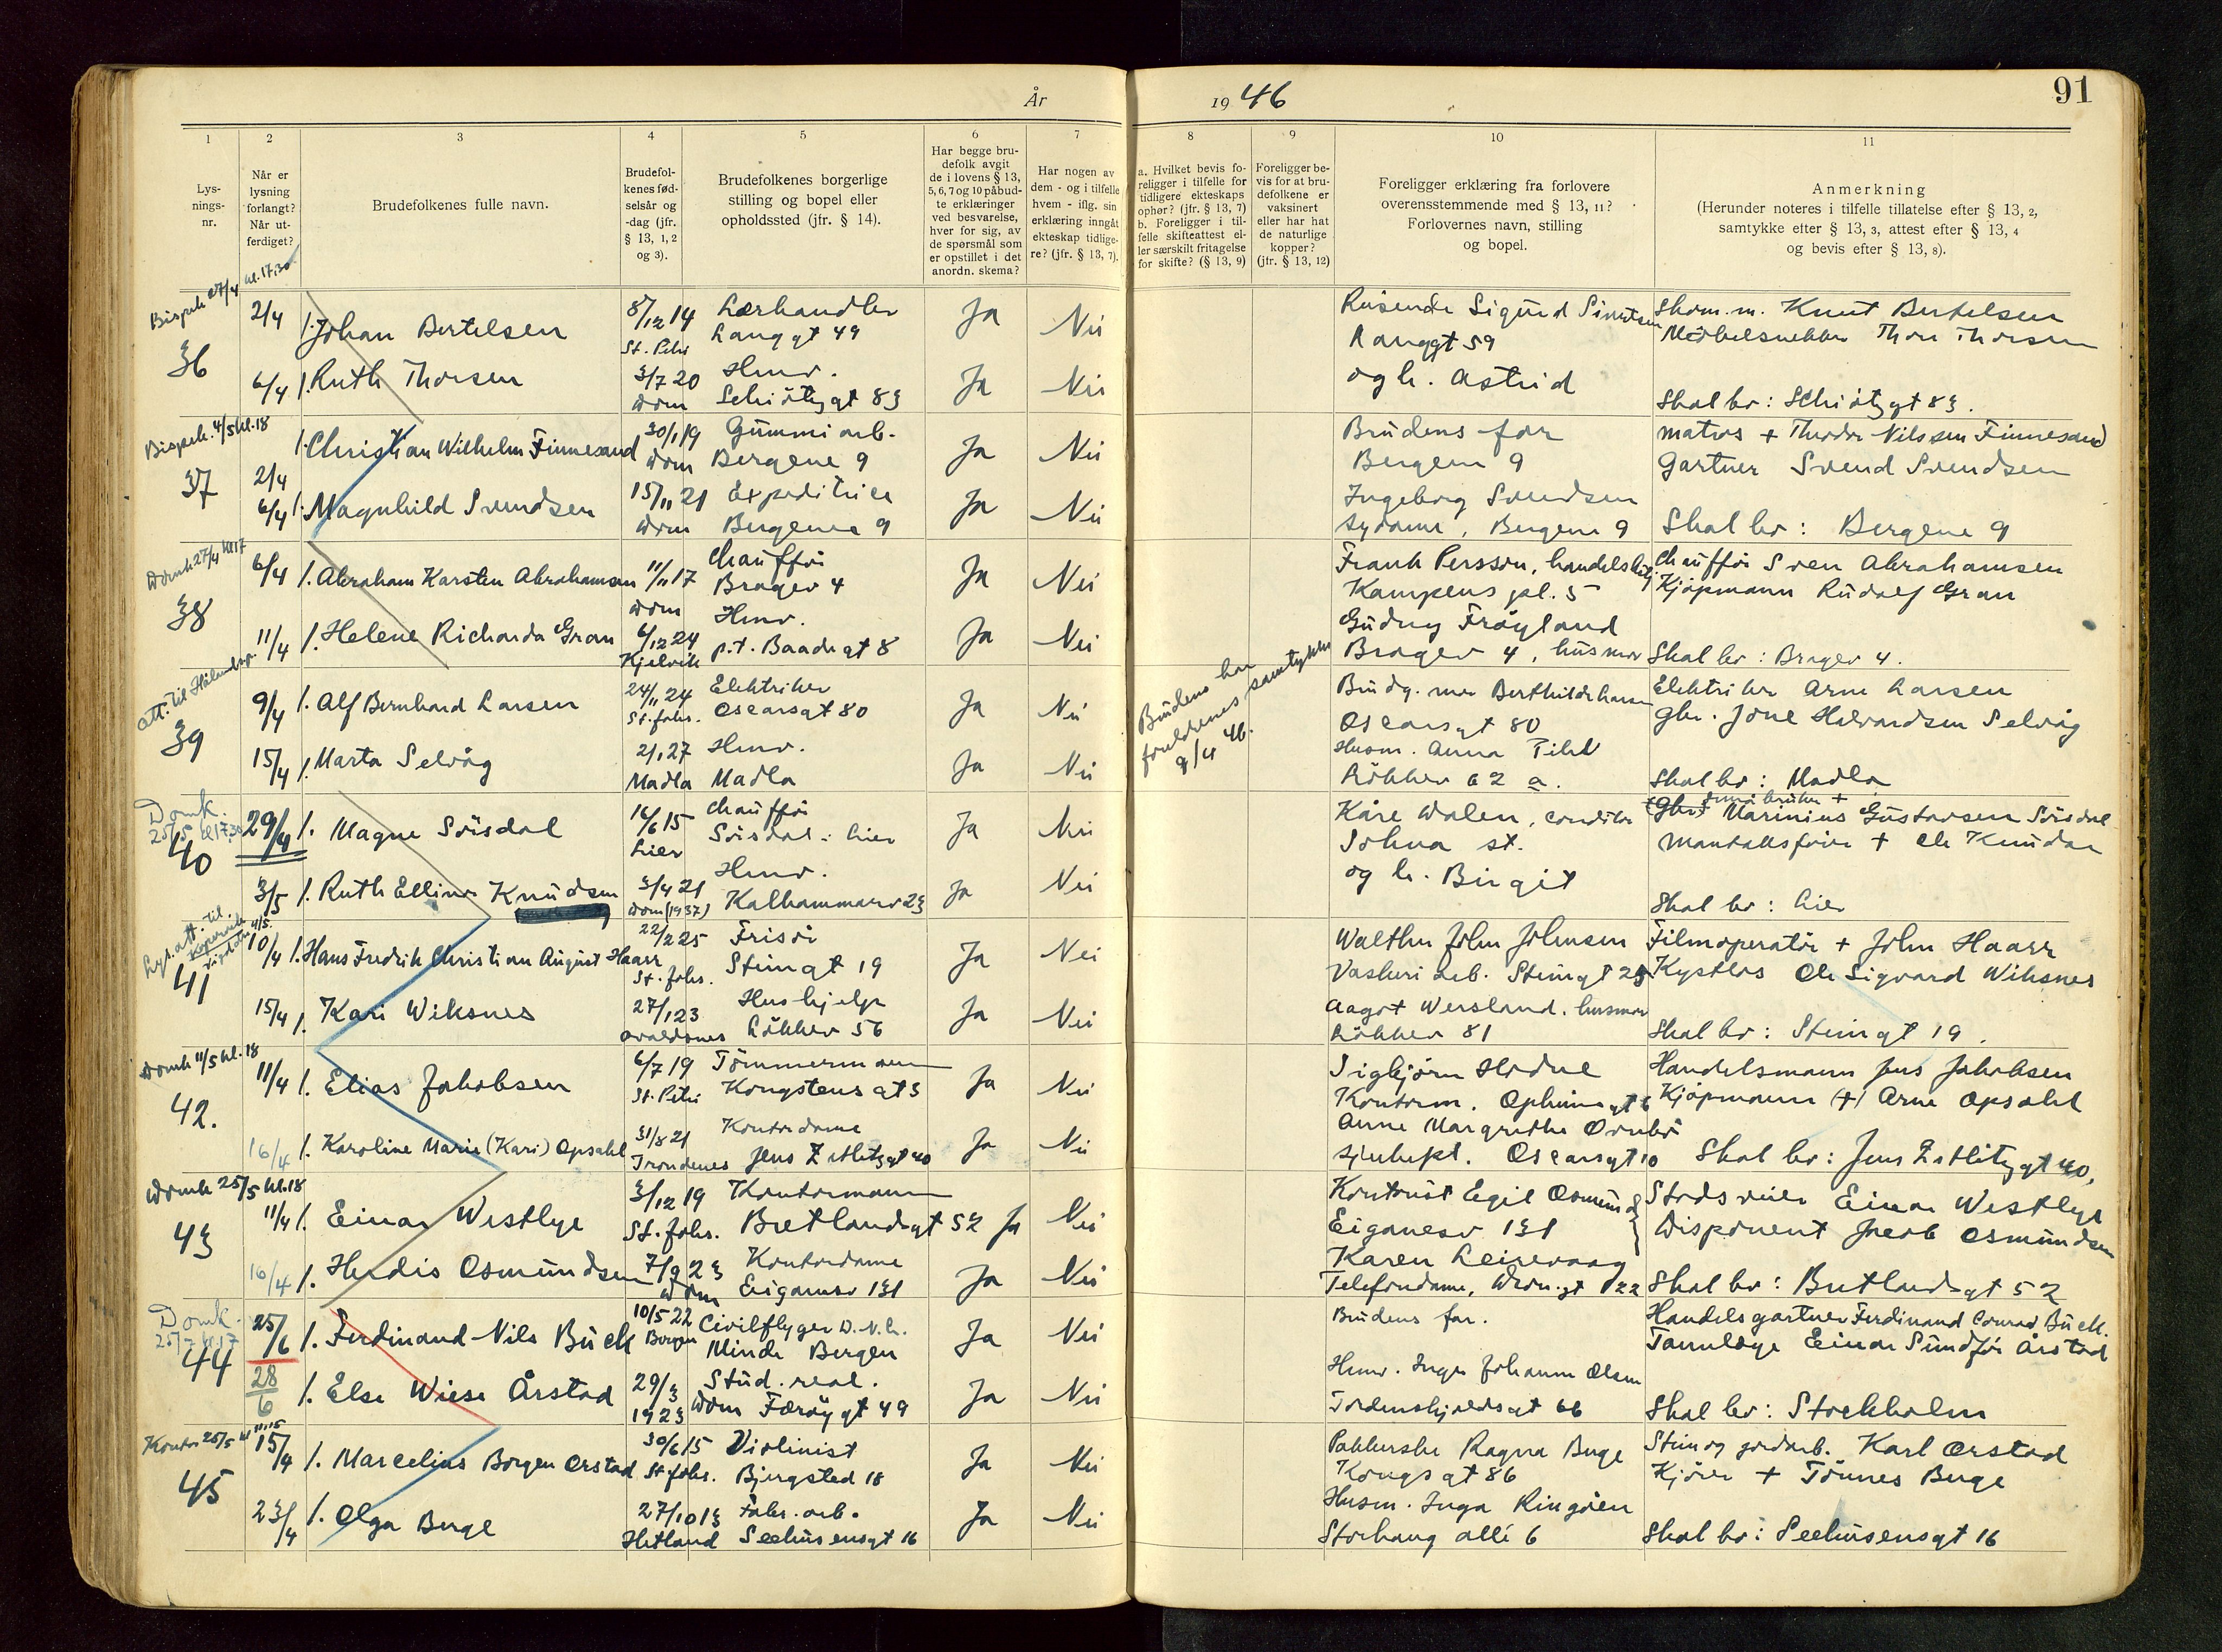 År
19 46
91
1
2
3
4
5
6
7
8
9
10
11
Lys-
nings-
nr.
Når er
lysning
forlangt?
Når ut-
ferdiget?
Brudefolkenes fulle navn.
Brudefol-
kenes fød-
selsår og
-dag (jfr.
§ 13, 1, 2
og 3).
Brudefolkenes borgerlige
stilling og bopel eller
opholdssted (jfr. § 14).
Har begge bru-
defolk avgit
de i lovens § 13,
5, 6, 7 og 10 påbud-
te erklæringer
ved besvarelse,
hver for sig, av
de spørsmål som
er opstillet i det
anordn. skema?
Har nogen av
dem - og i tilfelle
hvem - iflg. sin
erklæring inngått
ekteskap tidlige-
re? (jfr. § 13, 7).
a. Hvilket bevis fo-
religger i tilfelle for
tidligere ekteskaps
ophør? (jfr. § 13, 7)
b. Foreligger i til-
felle skifteattest el-
ler særskilt fritagelse
for skifte? (§ 13, 9)
Foreligger be-
vis for at bru-
defolkene er
vaksinert
eller har hat
de naturlige
kopper?
(jfr. § 13, 12)
Foreligger erklæring fra forlovere
overensstemmende med § 13, 11?
Forlovernes navn, stilling
og bopel.
Anmerkning
(Herunder noteres i tilfelle tillatelse efter § 13, 2,
samtykke efter § 13, 3, attest efter § 13, 4
og bevis efter § 13, 8).
Bispek 27/4 kl. 17,30
36
2/4 1. Johan Bertelsen 8/12 14 Lærhandler Ja Nei Reisende Sigurd Simetsen Skom.m. Knut Bertelsen
St. Petri Langgt 49 Langgt 59 Möbelsnekker Thor Thorsen
6/4 1. Ruth Thorsen 3/7 20 Husv. Ja Nei og h. Astrid
Dom Schiötzgt 83 Skal bo: Schiötzgt 83.
Bispek. 4/5 kl. 18
37
2/4 1. Christian Wilhelm Finnesand 30/1 19 Gummiarb. Ja Nei Brudens far Matros + Theodor Nilssen Finnesand
Dom Bergene 9 Bergene 9 Gartner Svend Svendsen
6/4 1. Magnhild Svendsen 15/11 21 Expeditrice Ja Nei Ingeborg Svendsen
Dom Bergene 9 sydame, Bergene 9 Skal bo: Bergene 9
Domk 27/4 kl 17
38
6/4 1. Abraham Karsten Abrahamsen 11/11 17 Chaufför Ja Nei Frank Persson, handelsbetj Chaufför Sven Abrahamsen
Dom Bragev 4 Kampens pl. 5 Kjöpmann Rudolf Gran
11/4 1. Helene Richarda Gran 6/12 24 Husv. Ja Nei Gudny Fröyland
Kjelvik p.t. Baadsgt 8 Bragev 4, husmor Skal bo: Bragev 4.
Att. til Hålandspr.
39
9/4 1. Alf Bernhard Larsen 24/11 24 Elektriker Ja Nei Brudg. mor Berthilde Larsen Elektriker Arne Larsen
St. Johs. Oscarsgt 80 Oscarsgt 80 Gbr. Jone Halvardsen Selvåg
Brudens har
foreldrenes samtykke
9/4 46.
15/4 1. Marta Selvåg 2/1 27 Husv. Ja Nei Husm. Anna
Madla Madla Lökkev 62 a. Skal bo: Madla
Domk.
25/5 kl 17,30
40
29/4 1. Magne Sörsdal 16/6 15 Chaufför Ja Nei Kåre Walen, conditor Gbr. småbruker + Marinius Gustavsen Sörsdal
Lier Sörsdal i Lier Sohna st. Mantallsförer + Ole Knudsen
3/5 1. Ruth Ellinor Knudsen 3/4 21 Husv. Ja Nei og h. Birgit
Dom (1937) Kalhammarv 23 Skal bo: Lier
Lys. att. til
Kopervik
4/5.
41
10/4 1. Hans Fredrik Christian August Haarr 22/2 25 Frisör Ja Nei Walther John Johnsen Filmoperatör + John Haarr
St. Johs. Steingt 19 Vaskeri arb. Steingt 25 Kystlos Ole Sigvard Wiksnes
15/4 1. Kari Wiksnes 27/1 23 Hushjelp Ja Nei Aagot Wersland. husmor
Avaldsnes Lökkev 56 Lökkev 81 Skal bo: Steingt 19.
Domk 11/5 kl. 18
42.
11/4 1. Elias Jakobsen 6/7 19 Tömmermann Ja Nei Sigbjörn Hodne Handelsmann Jens Jakobsen
St. Petri Kongstensgt 3 Kontorm. Opheimsgt 6 Kjöpmann (+) Arne Opsahl
16/4 1. Karoline Marie (Kari) Opsahl 31/8 21 Kontordame Ja Nei Anne Margrethe
Trondenes Jens Zetlitzgt 40 Oscarsgt 10 Skal bo: Jens Zetlitzgt 40,
Domk 25/5 kl. 18
43
11/4 1. Einar Westlye 3/12 19 Kontormann Ja Nei Kontorist Egil Osmund Stadsveier Einar Westlye
St. Johs. Bretlandsgt 52 Eiganesv 131 Disponent Jacob Osmundsen
16/4 1. Herdis Osmundsen 7/9 23 Kontordame Ja Nei Karen Leirevaag
Dom Eiganesv 131 Telefondame, Dron.gt 22 Skal bo: Bretlandsgt 52
Domk.
25/7 kl. 17
44
25/6 1. Ferdinand Nils Büch 10/5 22 Civilflyger D.N.L. Ja Nei Brudens far. Handelsgartner Ferdinand Conrad Büch.
Bergen Minde Bergen Tannlæge Einar Sundför Årstad
28/6 1. Else Wiese Årstad 29/3 Stud. real. Ja Nei Husv. Inger Johanne Olsen
1923 Dom Færöygt 49 Tordenskjoldsgt 66 Skal bo: Stockholm
Kontor 25/5 kl 11,15
45
15/4 1. Marcelius Borgen Orstad 30/6 15 Violinist Ja Nei Pakkerske Ragna Berge Stein og jordarb. Karl Orstad
St. Johs. Bjergsted 18 Kongsgt 86 Kjörer + Tönnes Berge
23/4 1. Olga Berge 27/10 13 Fabr. arb. Ja Nei Husm. Inga Ringöen
Hetland Seehusensgt 16 Storhaug allé 6 Skal bo: Seehusensgt 16